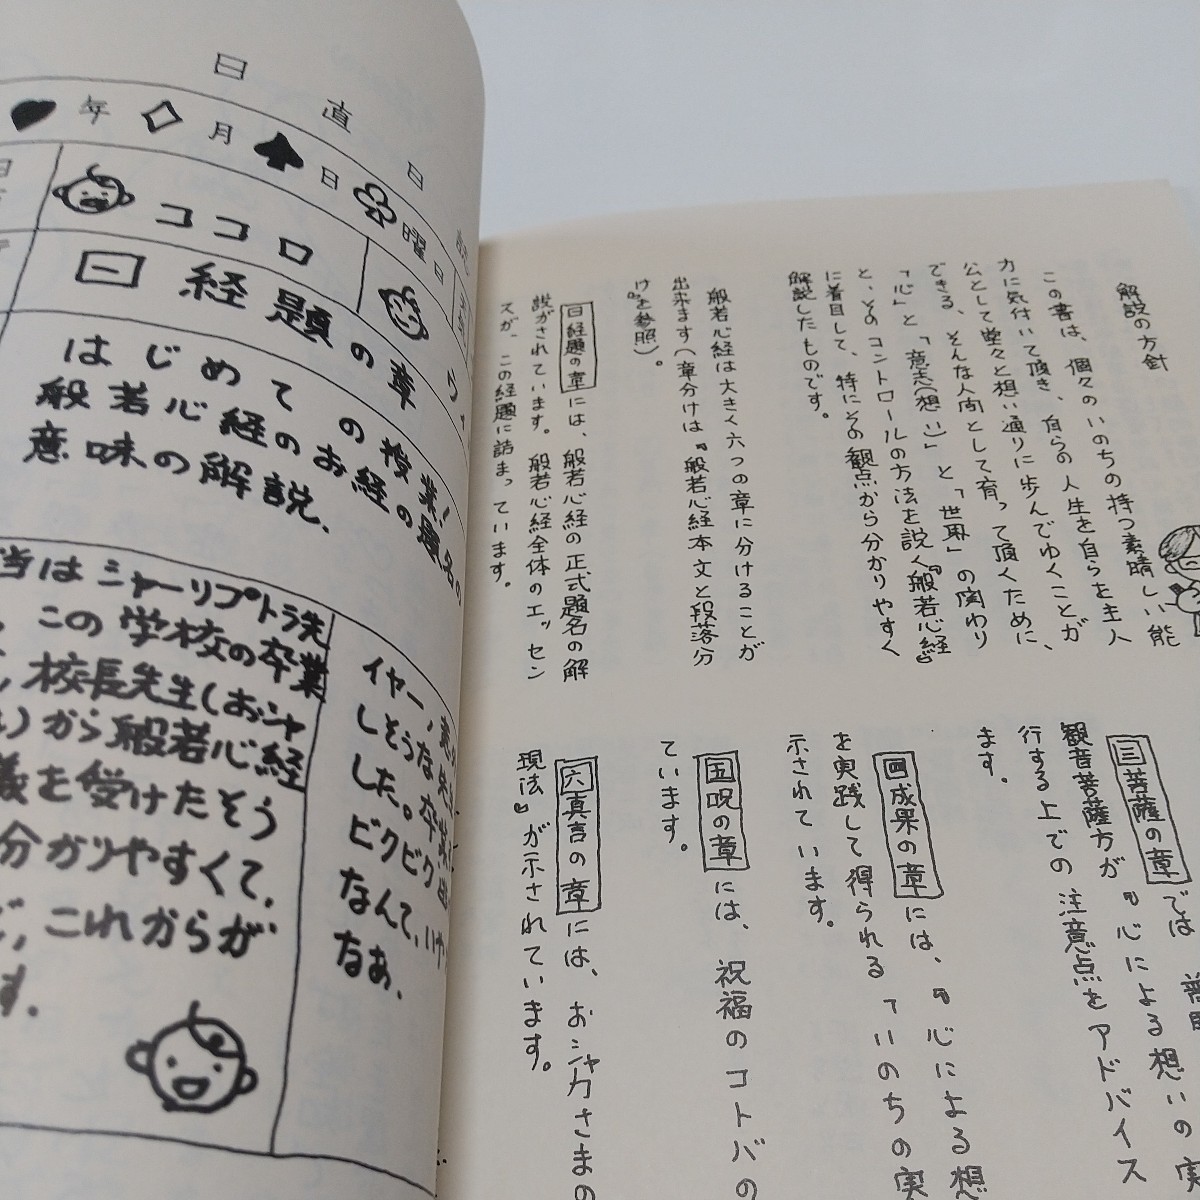 日直日誌
年 月 日 曜日
ココロ
一 経題の章
はじめての授業!
般若心経のお経の題名の
意味の解説.
当はシャーリプトラ先
この学校の卒業
校長先生(おシャ
から般若心経
義を受けたそう
分かりやすくて,
これからが
す.
イヤー,
しそうな
した。卒業
ビクビク
なんて,いや
なぁ.
解説の方針
この書は、個々のいのちの持つ素晴しい能
力に気付いて頂き、自らの人生を自らを主人
公として堂々と想い通りに歩んでゆくことが
できる、そんな人間として育って頂くために、
「心」と「意志(想い)」と「世界」の関わり
と、そのコントロールの方法を説く『般若心経』
に着目して、特にその観点から分かりやすく
解説したものです。
般若心経は大きく六つの章に分けることが
出来ます(章分けは『般若心経本文と段落分
け』を参照)。
一経題の章には、般若心経の正式題名の解
説がされています。般若心経全体のエッセン
スが、この経題に詰まっています。
三菩薩の章では
観音菩薩方が『心による想いの実
行する上での注意点をアドバイス
ます。
四成果の章には、『心による想
を実践して得られる「いのちの実
示されています。
五呪の章には、祝福のコトバの
ています。
六真言の章には、おシャカさまの
現法』が示されています。